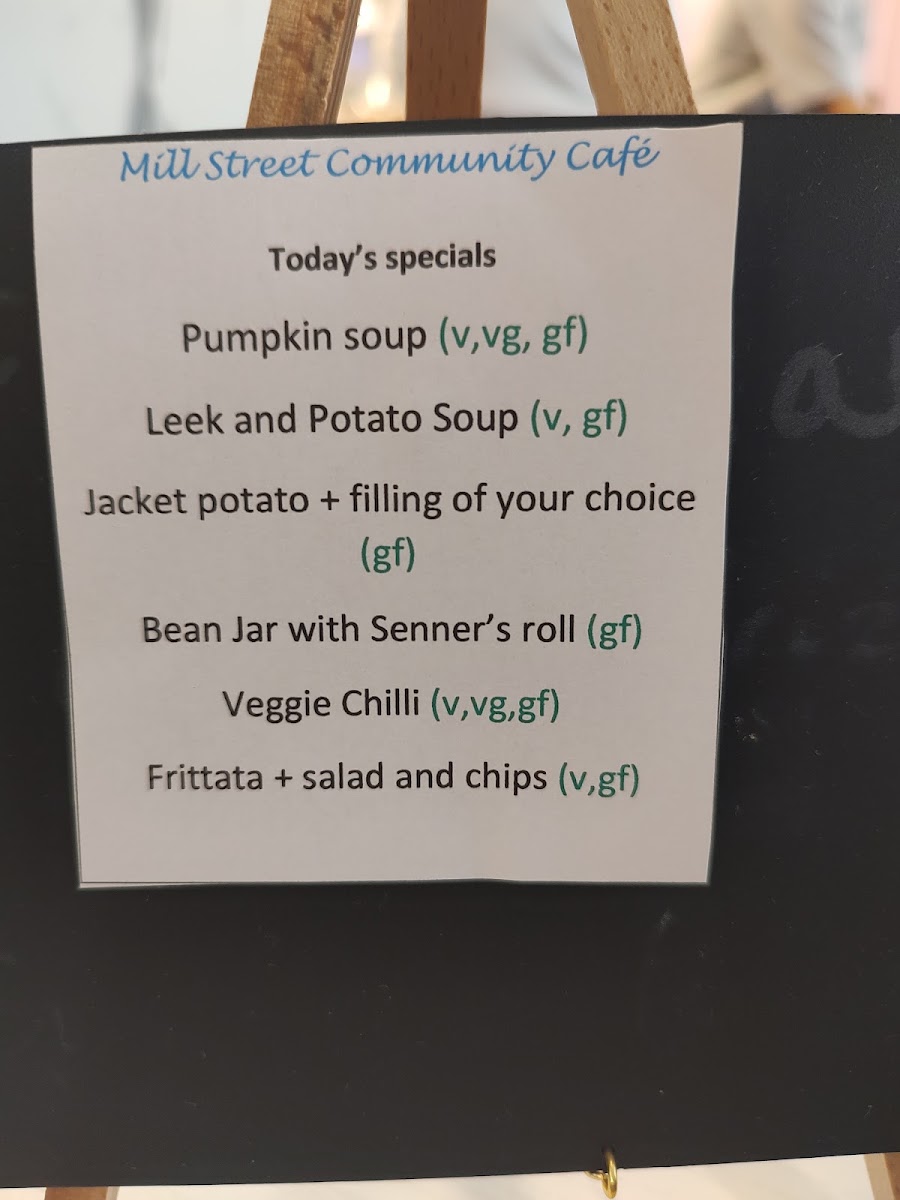 Mill Street Community Café
Today's specials
Pumpkin soup (v,vg, gf)
Leek and Potato Soup (v, gf)
Jacket potato + filling of your choice
(gf)
Bean Jar with Senner's roll (gf)
Veggie Chilli (v,vg,gf)
Frittata + salad and chips (v,gf)